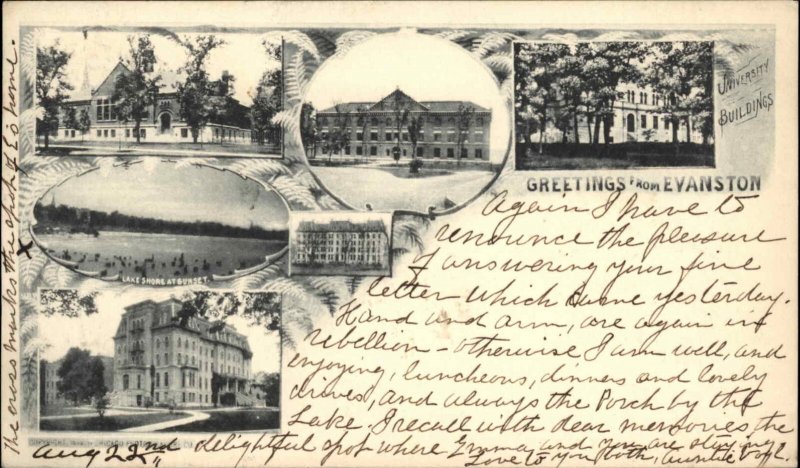 UNIVERSITY
BUILDINGS
GREETINGS FROM EVANSTON
LAKE SHORE AT SUNSET.
Again I have to
renounce the pleasure
of answering your fine
letter which came yesterday.
Hand and arm, are again in
rebellion - otherwise I am well, and
enjoying, luncheons, dinners and lovely
drives, and always the Porch by the
Lake. I recall with dear memories, the
delightful spot where Emma and you are staying
Love to you both, Auntie
Aug 22nd
The cross marks the spot of &c home.
X